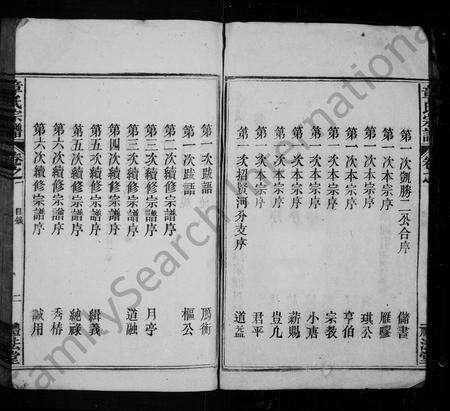 章氏宗譜
第一次凱勝二公合序 儲書
第一次本宗序 雁騮
第一次本宗序 琪公
第一次本宗序 亨伯
第一次本宗序 宗教
第一次本宗序 小唐
第一次本宗序 薪賜
第一次本宗序 豈凡
第一次本宗序 君平
第一次招賢河分支序 道益
第一次跋語 爲衡
第一次跋語 樞公
第二次續修宗譜序
第三次續修宗譜序 月亭
第三次續修宗譜序 道融
第四次續修宗譜序
第五次續修宗譜序 緝義
第五次續修宗譜序 純祿
第六次續修宗譜序 秀椿
第六次續修宗譜序 誠用
章氏宗譜
卷之一
目錄
二
FamilySearch International